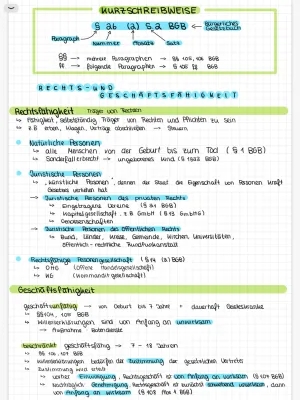 KURZSCHREIBWEISE
§ 26 (2) S.2 BGB ← Bürgerliches Gesetzbuch
Paragraph Nummer Absatz Satz
§§ → mehrere Paragraphen → §§ 105, 106 BGB
ff → folgende Paragraphen → § 105 ff BGB
RECHTS- UND
GESCHÄFTSFÄHIGKEIT
Rechtsfähigkeit Träger von Rechten
↳ Fähigkeit, selbstständig Träger von Rechten und Pflichten zu sein
↳ z.B. erben, klagen, Verträge abschließen → Steuern
Natürliche Personen
↳ alle Menschen von der Geburt bis zum Tod (§ 1 BGB)
↳ Sonderfall Erbrecht → ungeborenes Kind (§ 1923 BGB)
Juristische Personen
↳ "künstliche" Personen, denen der Staat die Eigenschaft von Personen kraft
Gesetzes verliehen hat
→ Juristische Personen des privaten Rechts
↳ Eingetragene Vereine (§ 21 BGB)
↳ Kapitalgesellschaft, z.B. GmbH (§ 13 GmbHG)
↳ Genossenschaften
→ Juristische Personen des öffentlichen Rechts
↳ Bund, Länder, Kreise, Gemeinde, Kirchen, Universitäten,
öffentlich-rechtliche Rundfunkanstalt
Rechtsfähige Personengesellschaft (§ 14 (2) BGB)
↳ OHG (offene Handelsgesellschaft)
↳ KG (Kommanditgesellschaft)
Geschäftsfähigkeit
geschäftsunfähig → von Geburt bis 7 Jahre + dauerhaft Geisteskranke
↳ §§ 104, 105 BGB
↳ Willenserklärungen sind von Anfang an unwirksam
→ Ausnahme: Botendienste
beschränkt geschäftsfähig → 7 - 18 Jahren
↳ §§ 106, 107 BGB
↳ Willenserklärungen bedürfen der Zustimmung der gesetzlichen Vertreter
↳ Zustimmung wird erteilt
↳ vorher: Einwilligung, Rechtsgeschäft ist von Anfang an wirksam (§ 107 BGB)
↳ nachträglich: Genehmigung, Rechtsgeschäft ist zunächst schwebend unwirksam, dann
von Anfang an wirksam (§ 108 Abs 1 BGB)